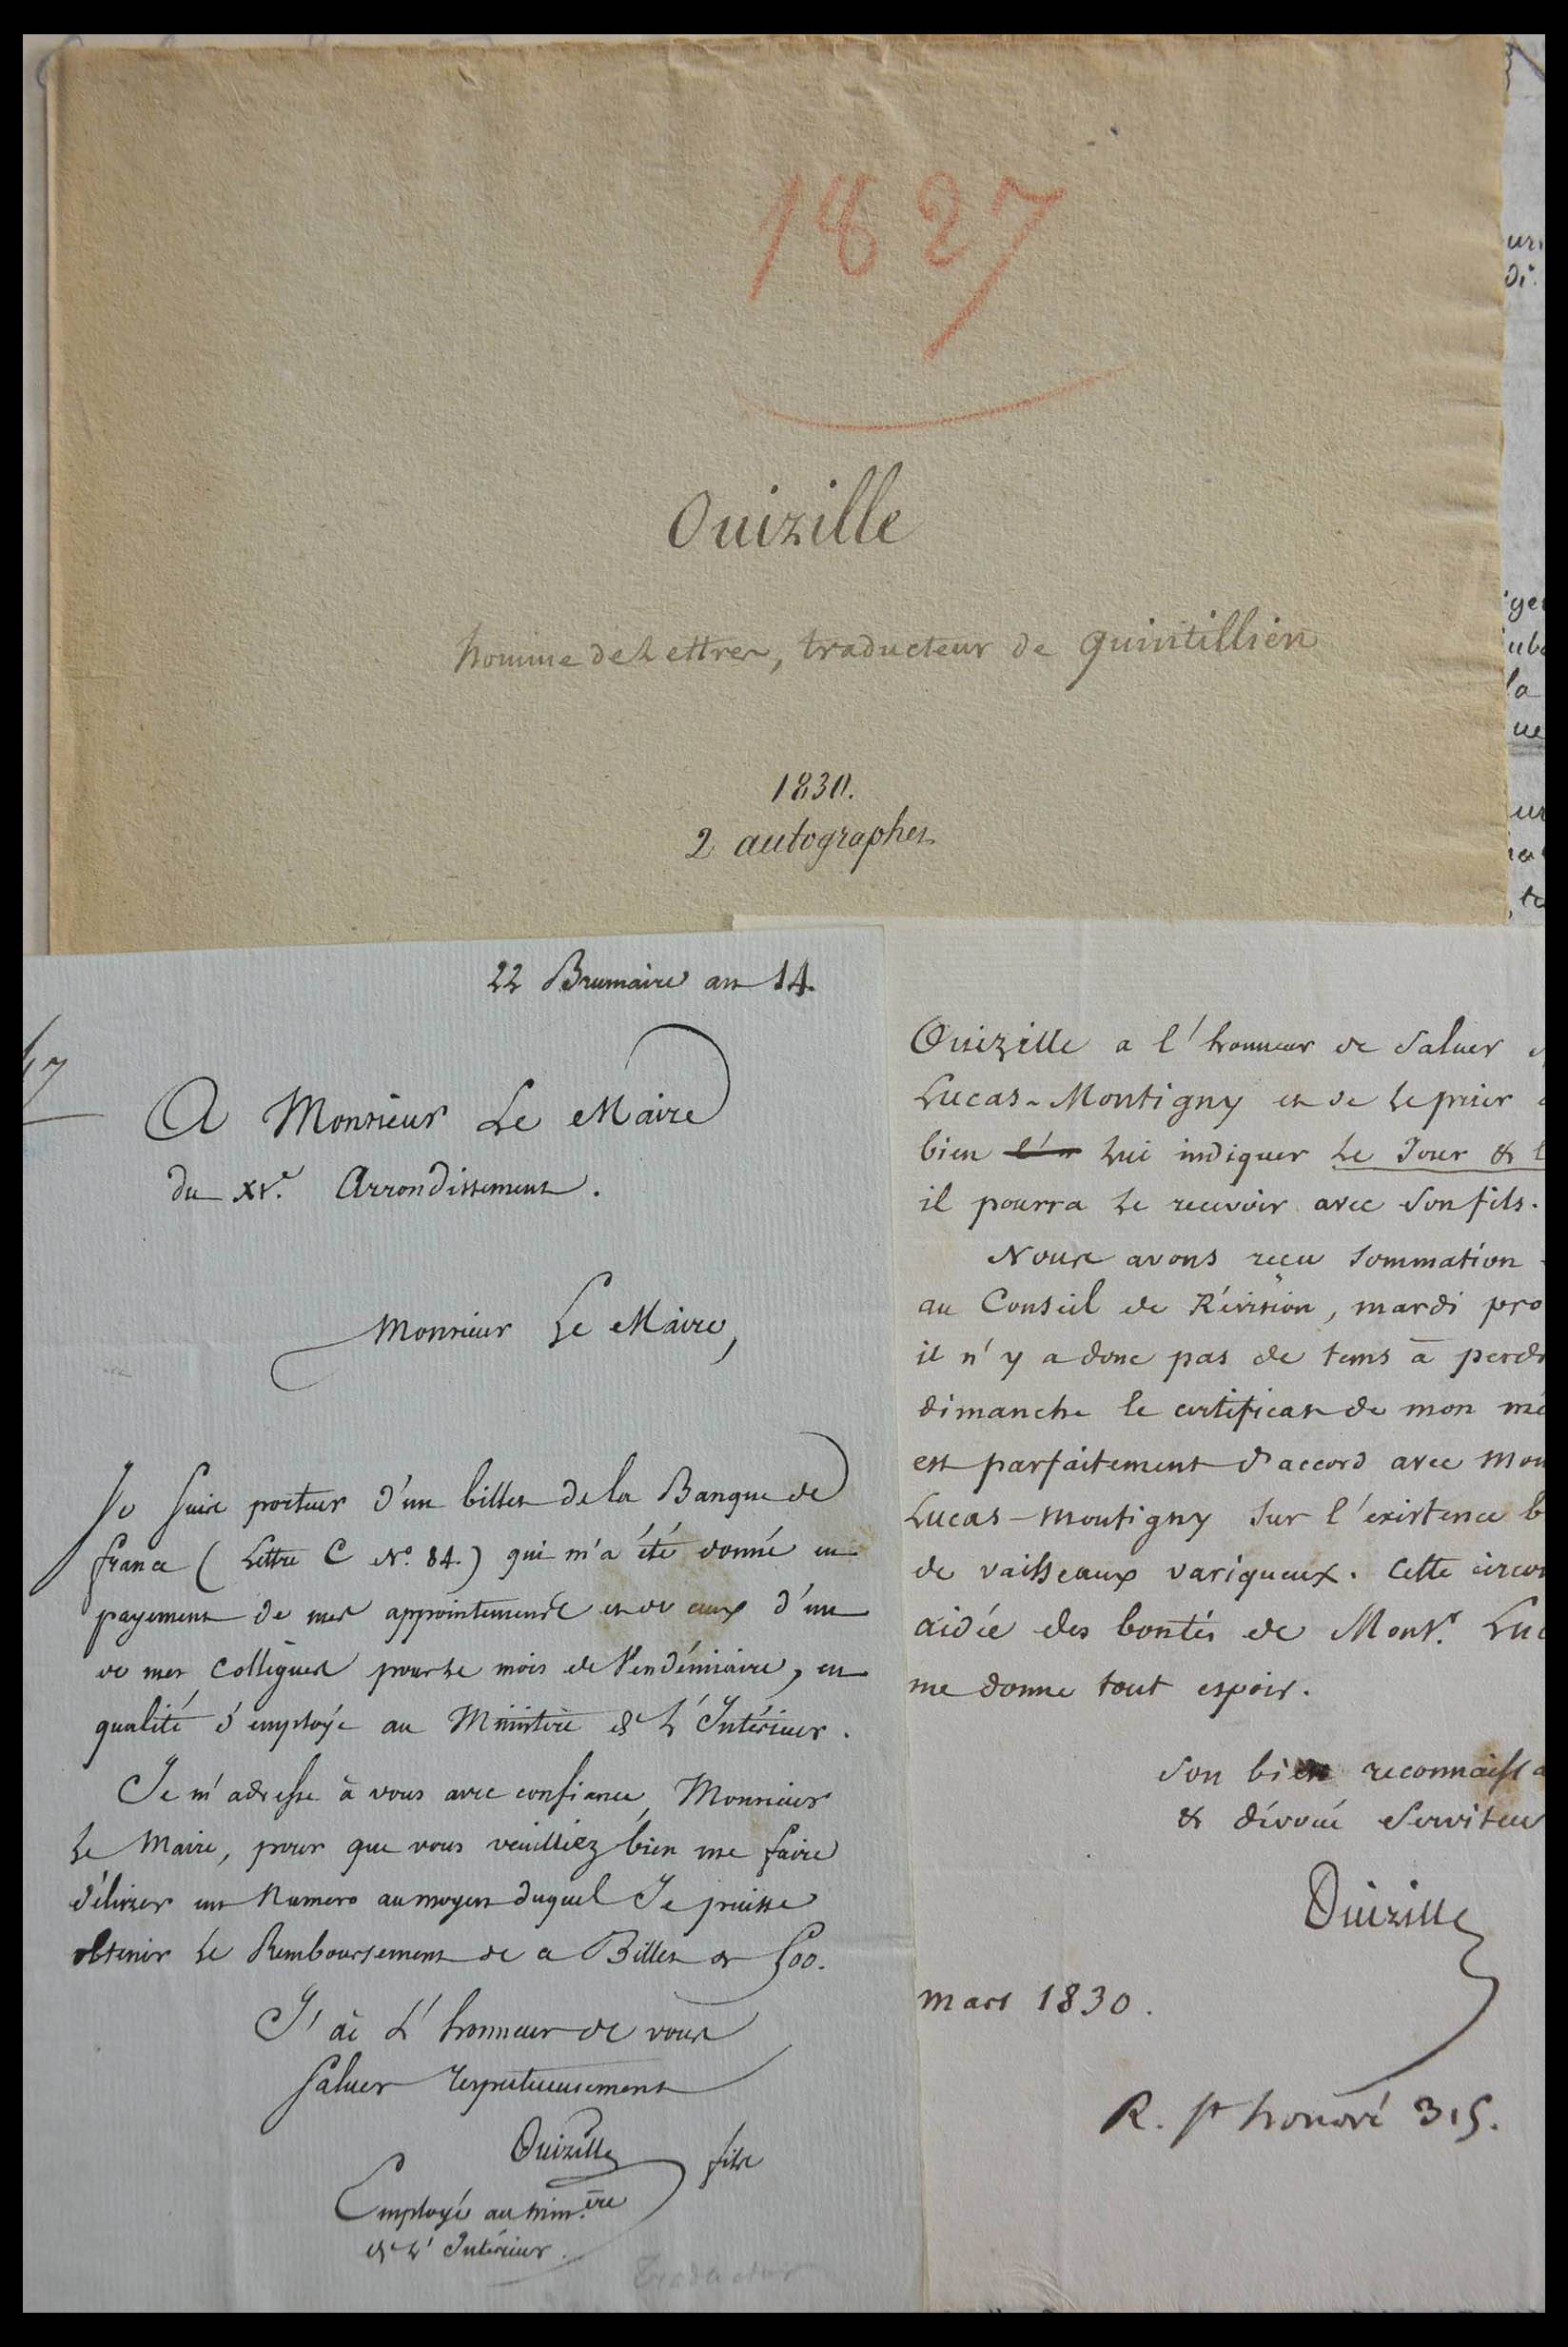 1827
Ouizille
homme de Lettres, traducteur de Quintillien
1830.
2 autographes
22 Brumaire an 14.
A Monsieur Le Maire
du XI.e Arrondissement.
Monsieur Le Maire,
Je suis porteur d'un billet de la Banque de
france ( Lettre C N.o 84. ) qui m'a été donné en
payement de mes appointements et de ceux d'un
de mes Collègues pour le mois de Vendémiaire, en
qualité d'employé au Ministère de L'Intérieur.
Je m'adresse à vous avec confiance, Monsieur
Le Maire, pour que vous veuilliez bien me faire
délivrer un Numero au moyen duquel Je puisse
obtenir Le Remboursement de ce Billet de 500.
J'ai L'honneur de vous
saluer respectueusement
Ouizille fils
Employé au Min.ère
de L'Intérieur.
Traducteur
Ouizille a l'honneur de Saluer
Lucas-Montigny et de Le prier
bien Lui indiquer Le Jour &
il pourra Le recevoir avec Son fils.
Nous avons reçu Sommation
au Conseil de Révision, mardi pro
il n'y a donc pas de tems à perdr
dimanche le certificat de mon mé
est parfaitement d'accord avec Mon
Lucas-Montigny Sur l'existence b
de vaisseaux variqueux. Cette circon
aidée des bontés de Mons.r Luc
me donne tout espoir.
Son bien reconnaissa
& dévoué Serviteu
Ouizille
mars 1830.
R. St honoré 315.